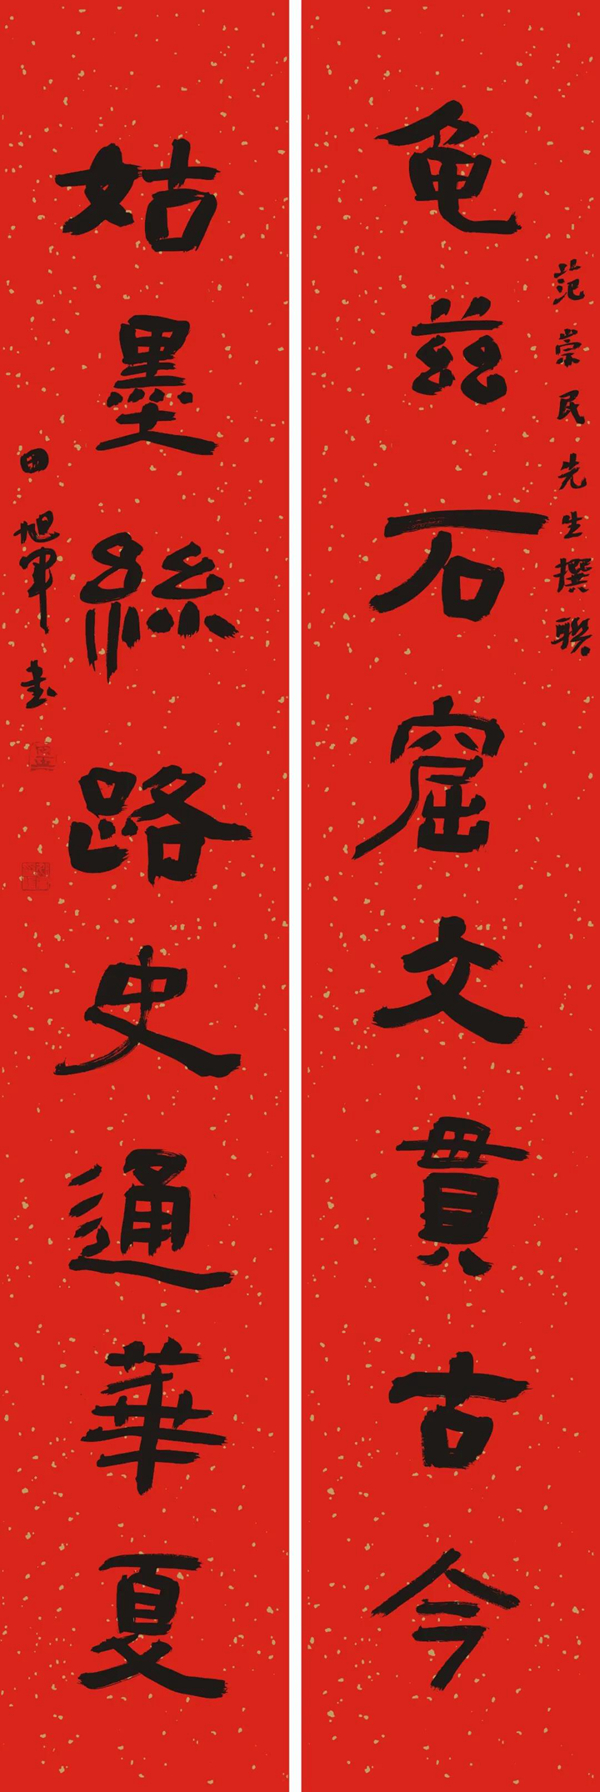 范崇民先生撰联
龟兹石窟文貫古今
姑墨絲路史通華夏
田旭軍书